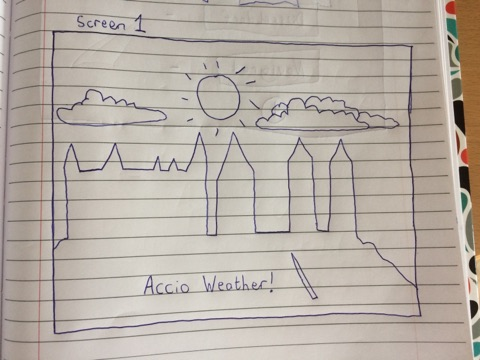 Screen 1
Accio Weather!